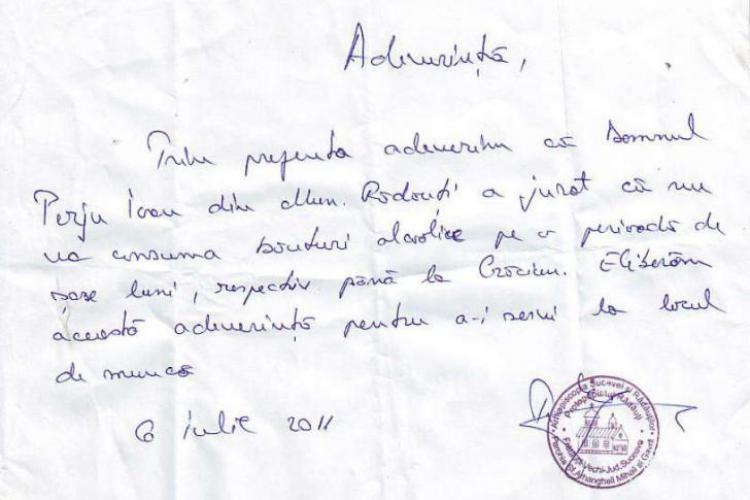 Adeverință,
Prin prezenta adeverim că domnul
Perju Ioan din Mun. Rădăuți a jurat că nu
va consuma băuturi alcolice pe o perioadă de
șase luni, respectiv până la Crăciun. Eliberăm
această adeverință pentru a-i servi la locul
de muncă
6 iulie 2011
Arhiepiscopia Sucevei și Rădăuților
Protopopiatul Rădăuți
Frătăuții-Vechi-Jud. Suceava
Parohia Sf. Arhangheli Mihail și Gavril